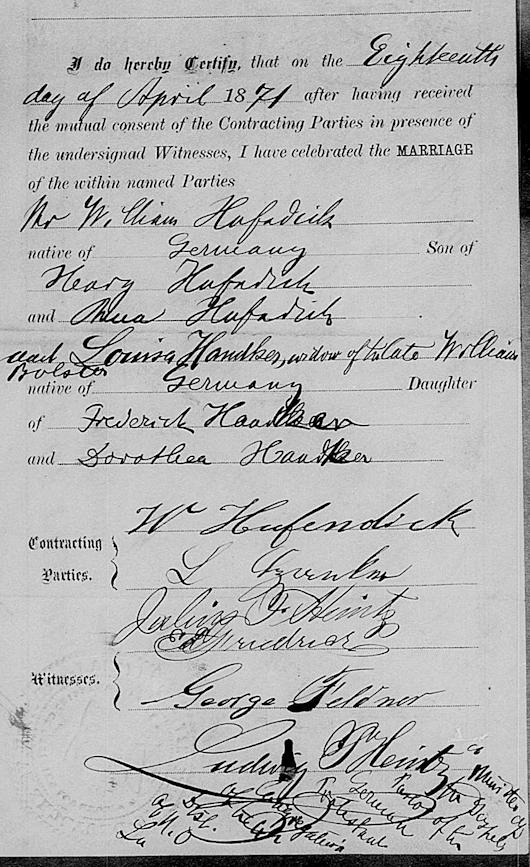 I do hereby Certify, that on the Eighteenth
day of April 1871 after having received
the mutual consent of the Contracting Parties in presence of
the undersignad Witnesses, I have celebrated the MARRIAGE
of the within named Parties
Mr William Hofedick
native of Germany Son of
Henry Hofedick
and Anna Hofedick
and Louisa Handker, widow of the late William
Bolster
native of Germany Daughter
of Frederick Handker
and Dorothea Handker
W Hufendick
Contracting
Parties.
L
Julius J. Heintz
Ed Friedrich
Witnesses.
George Feldner
Ludwig P. Heintz
a Minister of
the Gospel
Pastor of the
German
Protestant
of
N.O.
La